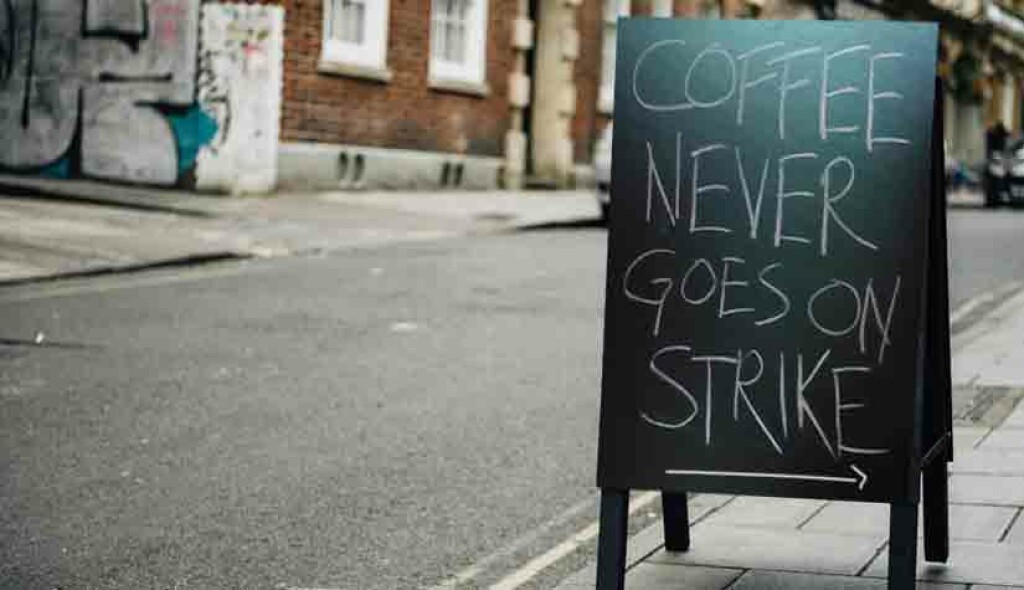 COFFEE
NEVER
GOES ON
STRIKE